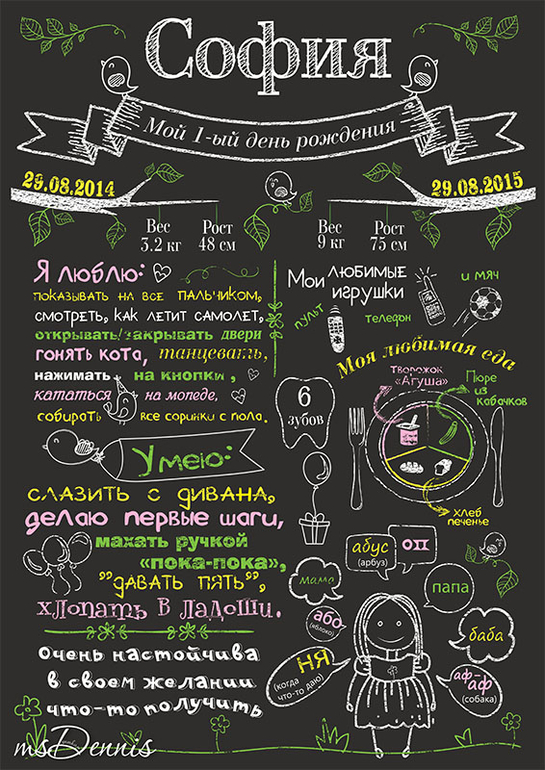 София
Мой 1-ый день рождения
29.08.2014
29.08.2015
Вес
3.2 кг
Рост
48 см
Вес
9 кг
Рост
75 см
Я люблю:
показывать на все пальчиком,
смотреть, как летит самолет,
открывать/закрывать двери
гонять кота, танцевать,
нажимать на кнопки,
кататься на мопеде,
собирать все соринки с пола.
Мои любимые
игрушки
и мяч
пульт
телефон
Моя любимая еда
творожок
«Агуша»
Пюре
из
кабачков
хлеб
печенье
6
зубов
Умею:
слазить с дивана,
делаю первые шаги,
махать ручкой
«пока-пока»,
"давать пять",
хлопать в ладоши.
Очень настойчива
в своем желании
что-то получить
абус
(арбуз)
оп
мама
папа
або
(яблоко)
баба
ня
(когда
что-то даю)
аф-
аф
(собака)
msDennis